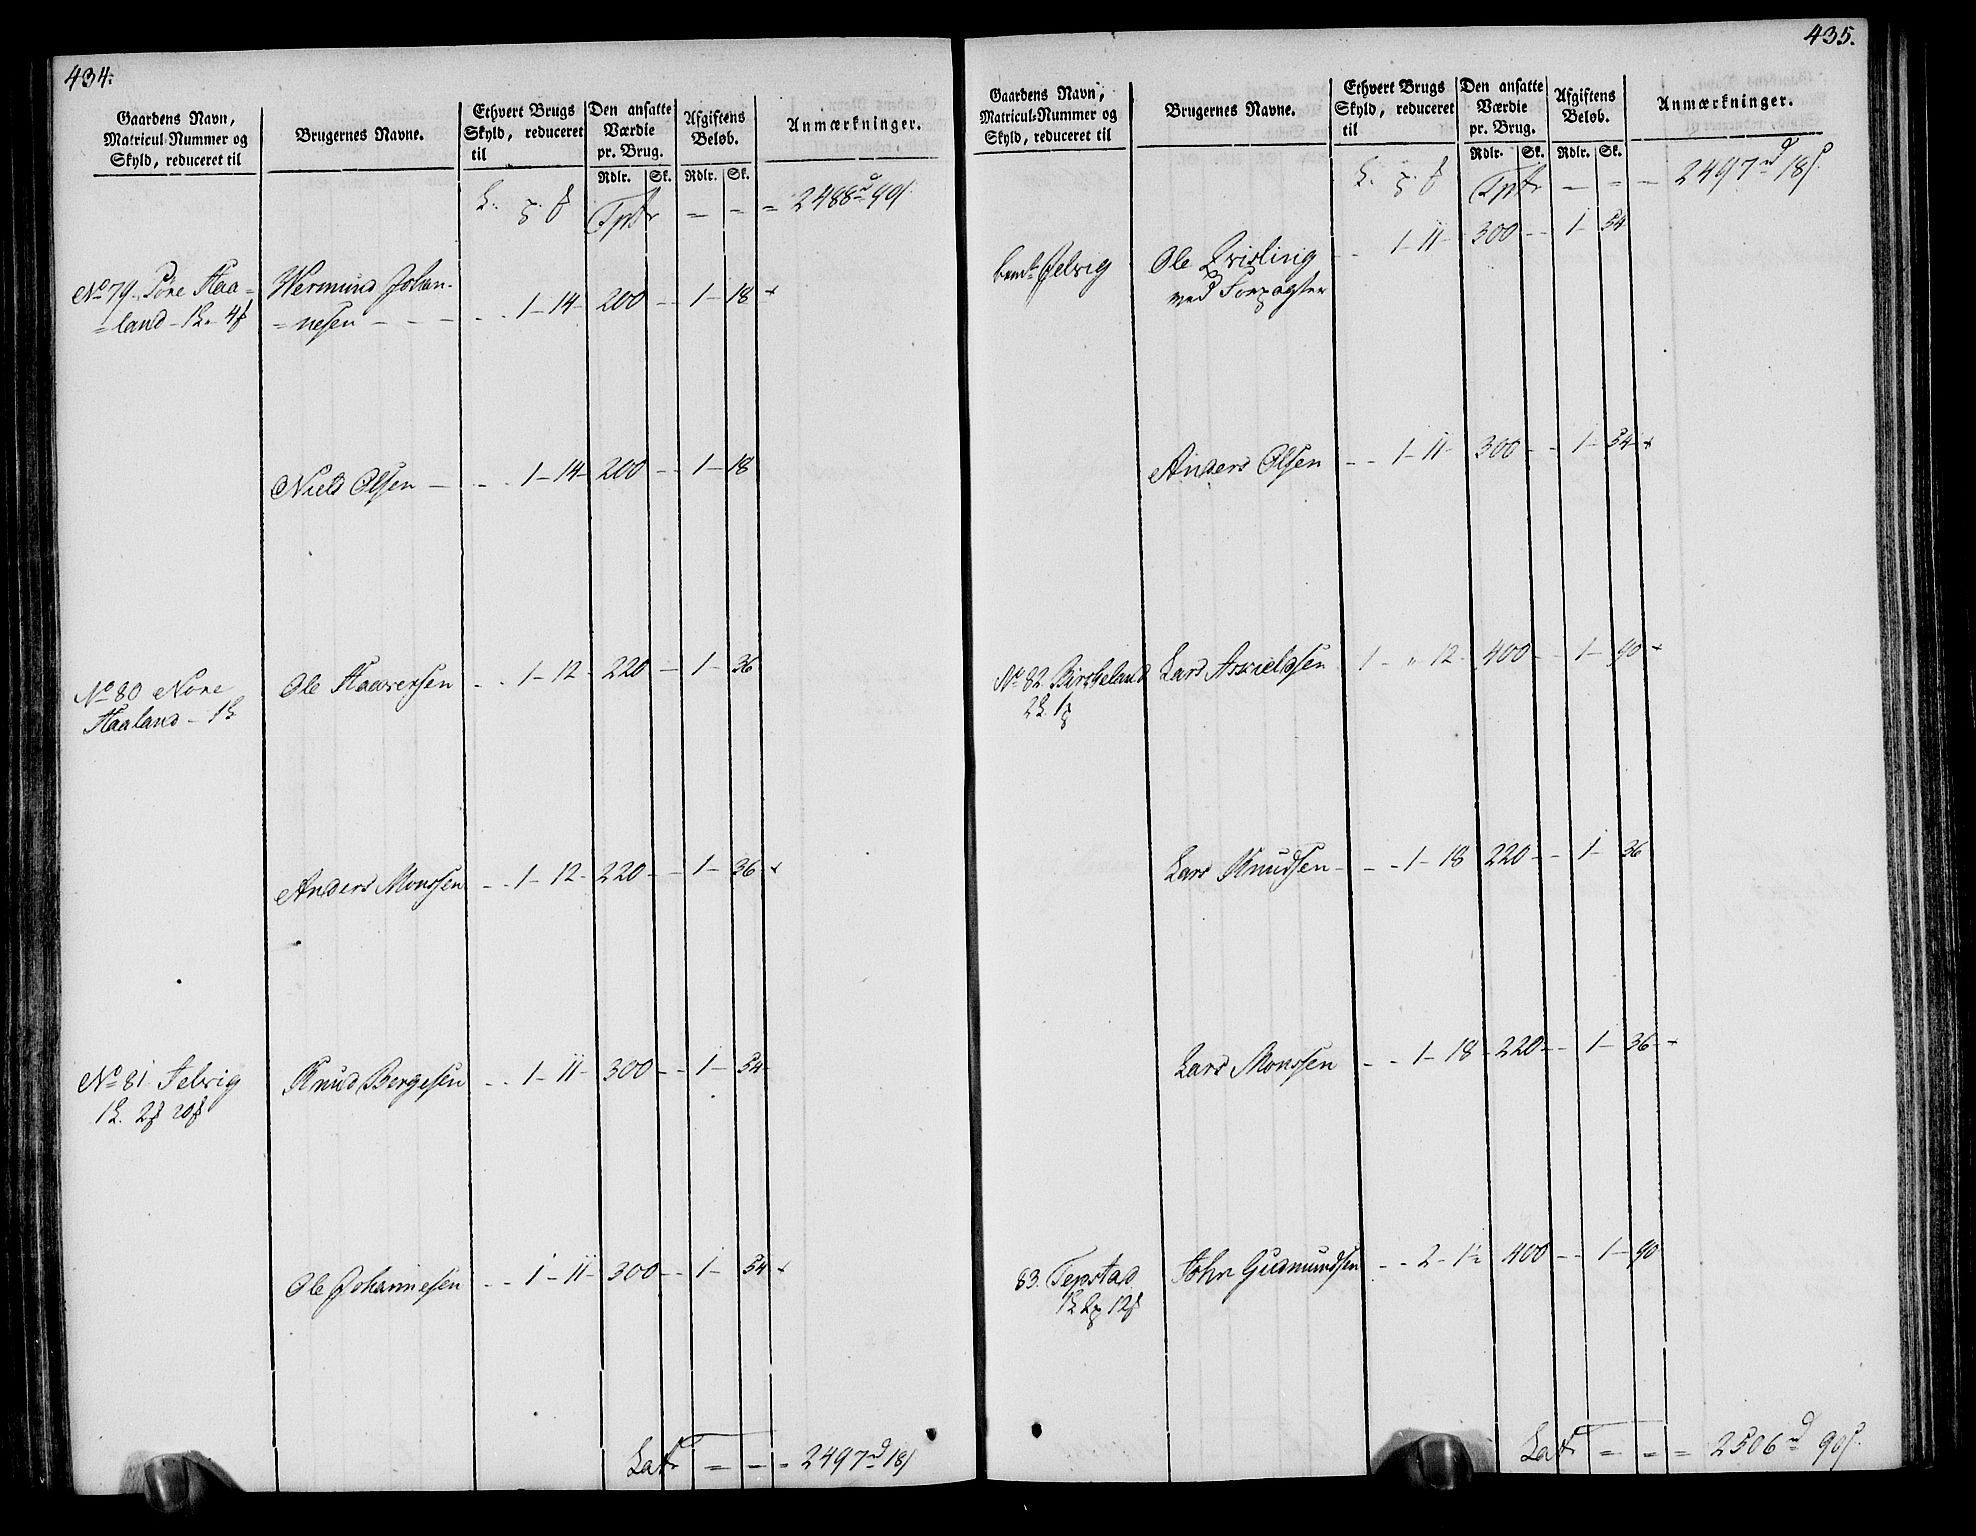 434.
Gaardens Navn, Matricul-Nummer og Skyld, reduceret til
Brugernes Navne.
Ethvert Brugs Skyld, reduceret til
Den ansatte Værdie pr. Brug.
Afgiftens Beløb.
Anmærkninger.
Rdlr. Sk. Rdlr. Sk.
Tptr = = = 2488
No 79. Haa=
=land - 4
Wermund Johan-
=nesen - - - - - 1 - 14 - 200 - - 1 - 18
Niels Olsen - - - 1 - 14 - 200 - - 1 - 18
No 80 Nore
Haaland - 1
Ole Haaversen - - 1 - 12 - 220 - - 1 - 36
Anders Monssen - - 1 - 12 - 220 - - 1 - 36
No 81. Jelvig
1 2 20
Knud Bergesen - - 1 - 11 - 300 - - 1 - 54
Ole Johannesen - - 1 - 11 - 300 - - 1 - 54
Lat = = = 2497 18
435.
Gaardens Navn, Matricul-Nummer og Skyld, reduceret til
Brugernes Navne.
Ethvert Brugs Skyld, reduceret til
Den ansatte Værdie pr. Brug.
Afgiftens Beløb.
Anmærkninger.
Rdlr. Sk. Rdlr. Sk.
Tptr = = = 2497 18
Jelvig
Ole Qvisling - - 1 - 11 - 300 - - 1 - 54
ved Forpagter
Anders Olsen - - 1 - 11 - 300 - - 1 - 54
No 82. Birckeland
2 1
Lars Asrieldsen 1 - " 12 - 400 - - 1 - 90
Lars Knudsen - - - 1 - 18 220 - - 1 - 36
Lars Monssen - - 1 - 18 - 220 - - 1 - 36
83. Tepstad
1 2 12
John Gudmundsen - - 2 - 1½ 400 - - 1 - 90
Lat = = = 2506 90